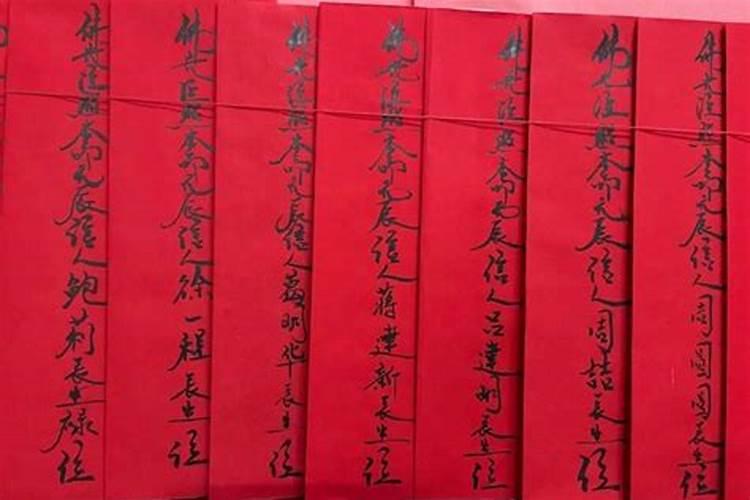 佛光注照本命元辰信人周圆圆長生位
佛光注照本命元辰信人周喆長生位
佛光注照本命元辰信人吕建明長生位
佛光注照本命元辰信人蒋建新長生位
佛光注照本命元辰信人明华長生位
佛光注照本命元辰信人徐一程長生位
佛光注照本命元辰信人鲍莉長生禄位